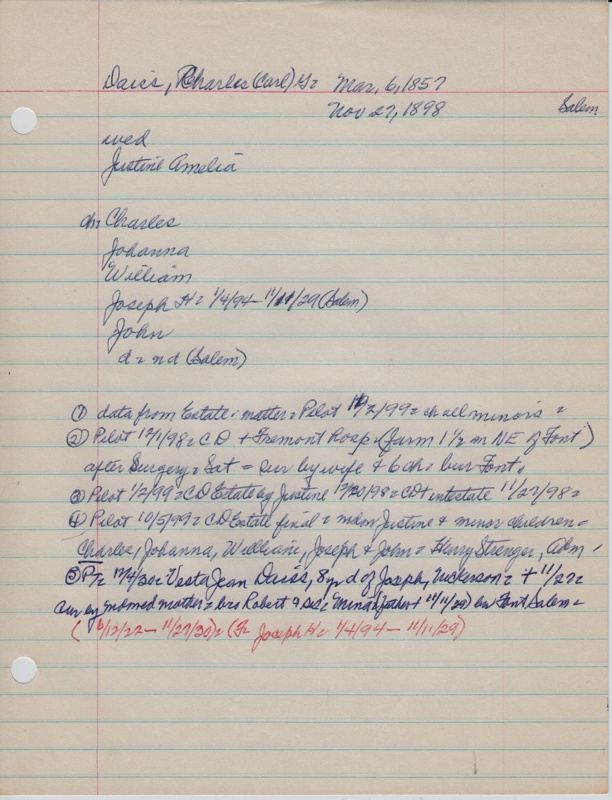 Daiss, Charles (Carl) G= Mar, 6, 1857
Nov 27, 1898 Salem
wed
Justine Amelia
ch= Charles
Johanna
William
Joseph H= 1/4/94 - 11/11/29 (Salem)
John
d = nd (Salem)
① data from Estate matter = Pilot 10/2/99 = ch all minors =
② Pilot 12/1/98 = CD + Fremont Hosp. (farm 1 1/2 m NE of Font)
after Surgery = Sat = sur by wife & 6 ch = bur Font.
③ Pilot 1/2/99 = CD Estate by Justine 12/30/98 = CD + intestate 11/27/98 =
④ Pilot 10/5/99 = CD Estate final = mdm Justine & minor children =
Charles, Johanna, William, Joseph & John = Henry Strenger, Adm.
⑤ 12/4/30 = Vesta Jean Daiss, 8 yr d of Joseph, Nickerson = + 11/27 =
Sur by mother = bro Robert & sis = (father + 11/11/29) bur Font Salem =
(6/12/22 - 11/27/30) = (F= Joseph H= 1/4/94 - 11/11/29)